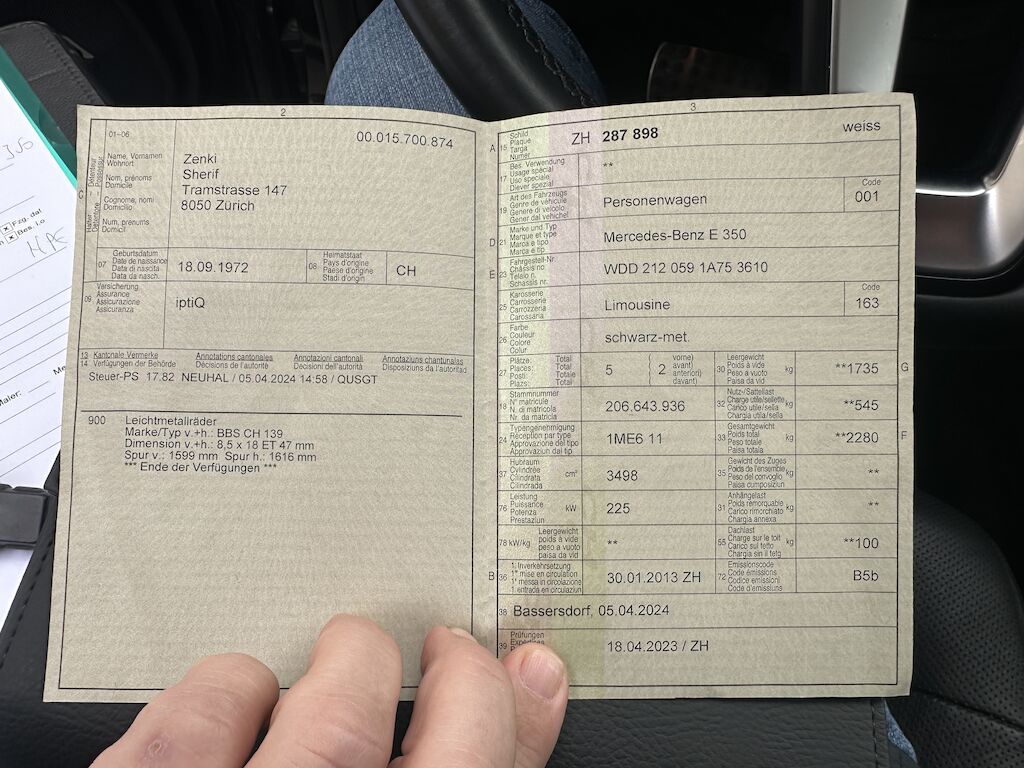 2
01-06
00.015.700.874
C
Name, Vornamen
Wohnort
Nom, prénoms
Domicile
Cognome, nomi
Domicilio
Num, prenums
Domicil
Zenki
Sherif
Tramstrasse 147
8050 Zürich
07
Geburtsdatum
Date de naissance
Data di nascita
Data da nasch.
18.09.1972
08
Heimatstaat
Pays d'origine
Paese d'origine
Stadi d'origin
CH
09
Versicherung
Assurance
Assicurazione
Assicuranza
iptiQ
13 Kantonale Vermerke Annotations cantonales Annotazioni cantonali Annotaziuns chantunalas
14 Verfügungen der Behörde Décisions de l'autorité Decisioni dell'autorità Disposiziuns da l'autoritad
Steuer-PS 17.82 NEUHAL / 05.04.2024 14:58 / QUSGT
900 Leichtmetallräder
Marke/Typ v.+h.: BBS CH 139
Dimension v.+h.: 8,5 x 18 ET 47 mm
Spur v.: 1599 mm Spur h.: 1616 mm
*** Ende der Verfügungen ***
3
A 15
Schild
Plaque
Targa
Numer
ZH 287 898 weiss
17
Bes. Verwendung
Usage spécial
Uso speciale
Diever spezial
**
19
Art des Fahrzeugs
Genre de véhicule
Genere di veicolo
Gener dal vehichel
Personenwagen
Code
001
D 21
Marke und Typ
Marque et type
Marca e tipo
Marca e tip
Mercedes-Benz E 350
E 23
Fahrgestell-Nr.
Châssis no
Telaio n.
Schassis nr.
WDD 212 059 1A75 3610
25
Karosserie
Carrosserie
Carrozzeria
Carossaria
Limousine
Code
163
26
Farbe
Couleur
Colore
Colur
schwarz-met.
27
Plätze: Total
Places: Total
Posti: Totale
Plazs: Total
5 ( 2
vorne)
avant)
anteriori)
davant)
30
Leergewicht
Poids à vide
Peso a vuoto
Paisa da vid
kg
**1735
G
18
Stammnummer
N° matricule
N. di matricola
Nr. da matricla
206.643.936
32
Nutz-/Sattellast
Charge utile/sellette
Carico utile/sella
Chargia utila/sella
kg
**545
24
Typengenehmigung
Réception par type
Approvazione del tipo
Approvaziun dal tip
1ME6 11
33
Gesamtgewicht
Poids total
Peso totale
Paisa totala
kg
**2280
F
37
Hubraum
Cylindrée
Cilindrata
Cilindrada
cm³
3498
35
Gewicht des Zuges
Poids de l'ensemble
Peso del convoglio
Paisa cumposiziun
kg
**
76
Leistung
Puissance
Potenza
Prestaziun
kW
225
31
Anhängelast
Poids remorquable
Carico rimorchiato
Chargia annexa
kg
**
78 kW/kg
Leergewicht
poids à vide
peso a vuoto
paisa da vid
**
55
Dachlast
Charge sur le toit
Carico sul tetto
Chargia sin il tetg
kg
**100
B 36
1. Inverkehrsetzung
1re mise en circulation
1a messa in circolazione
1. entrada en circulaziun
30.01.2013 ZH
72
Emissionscode
Code émissions
Codice emissioni
Code d'emissiuns
B5b
38 Bassersdorf, 05.04.2024
39
Prüfungen
18.04.2023 / ZH